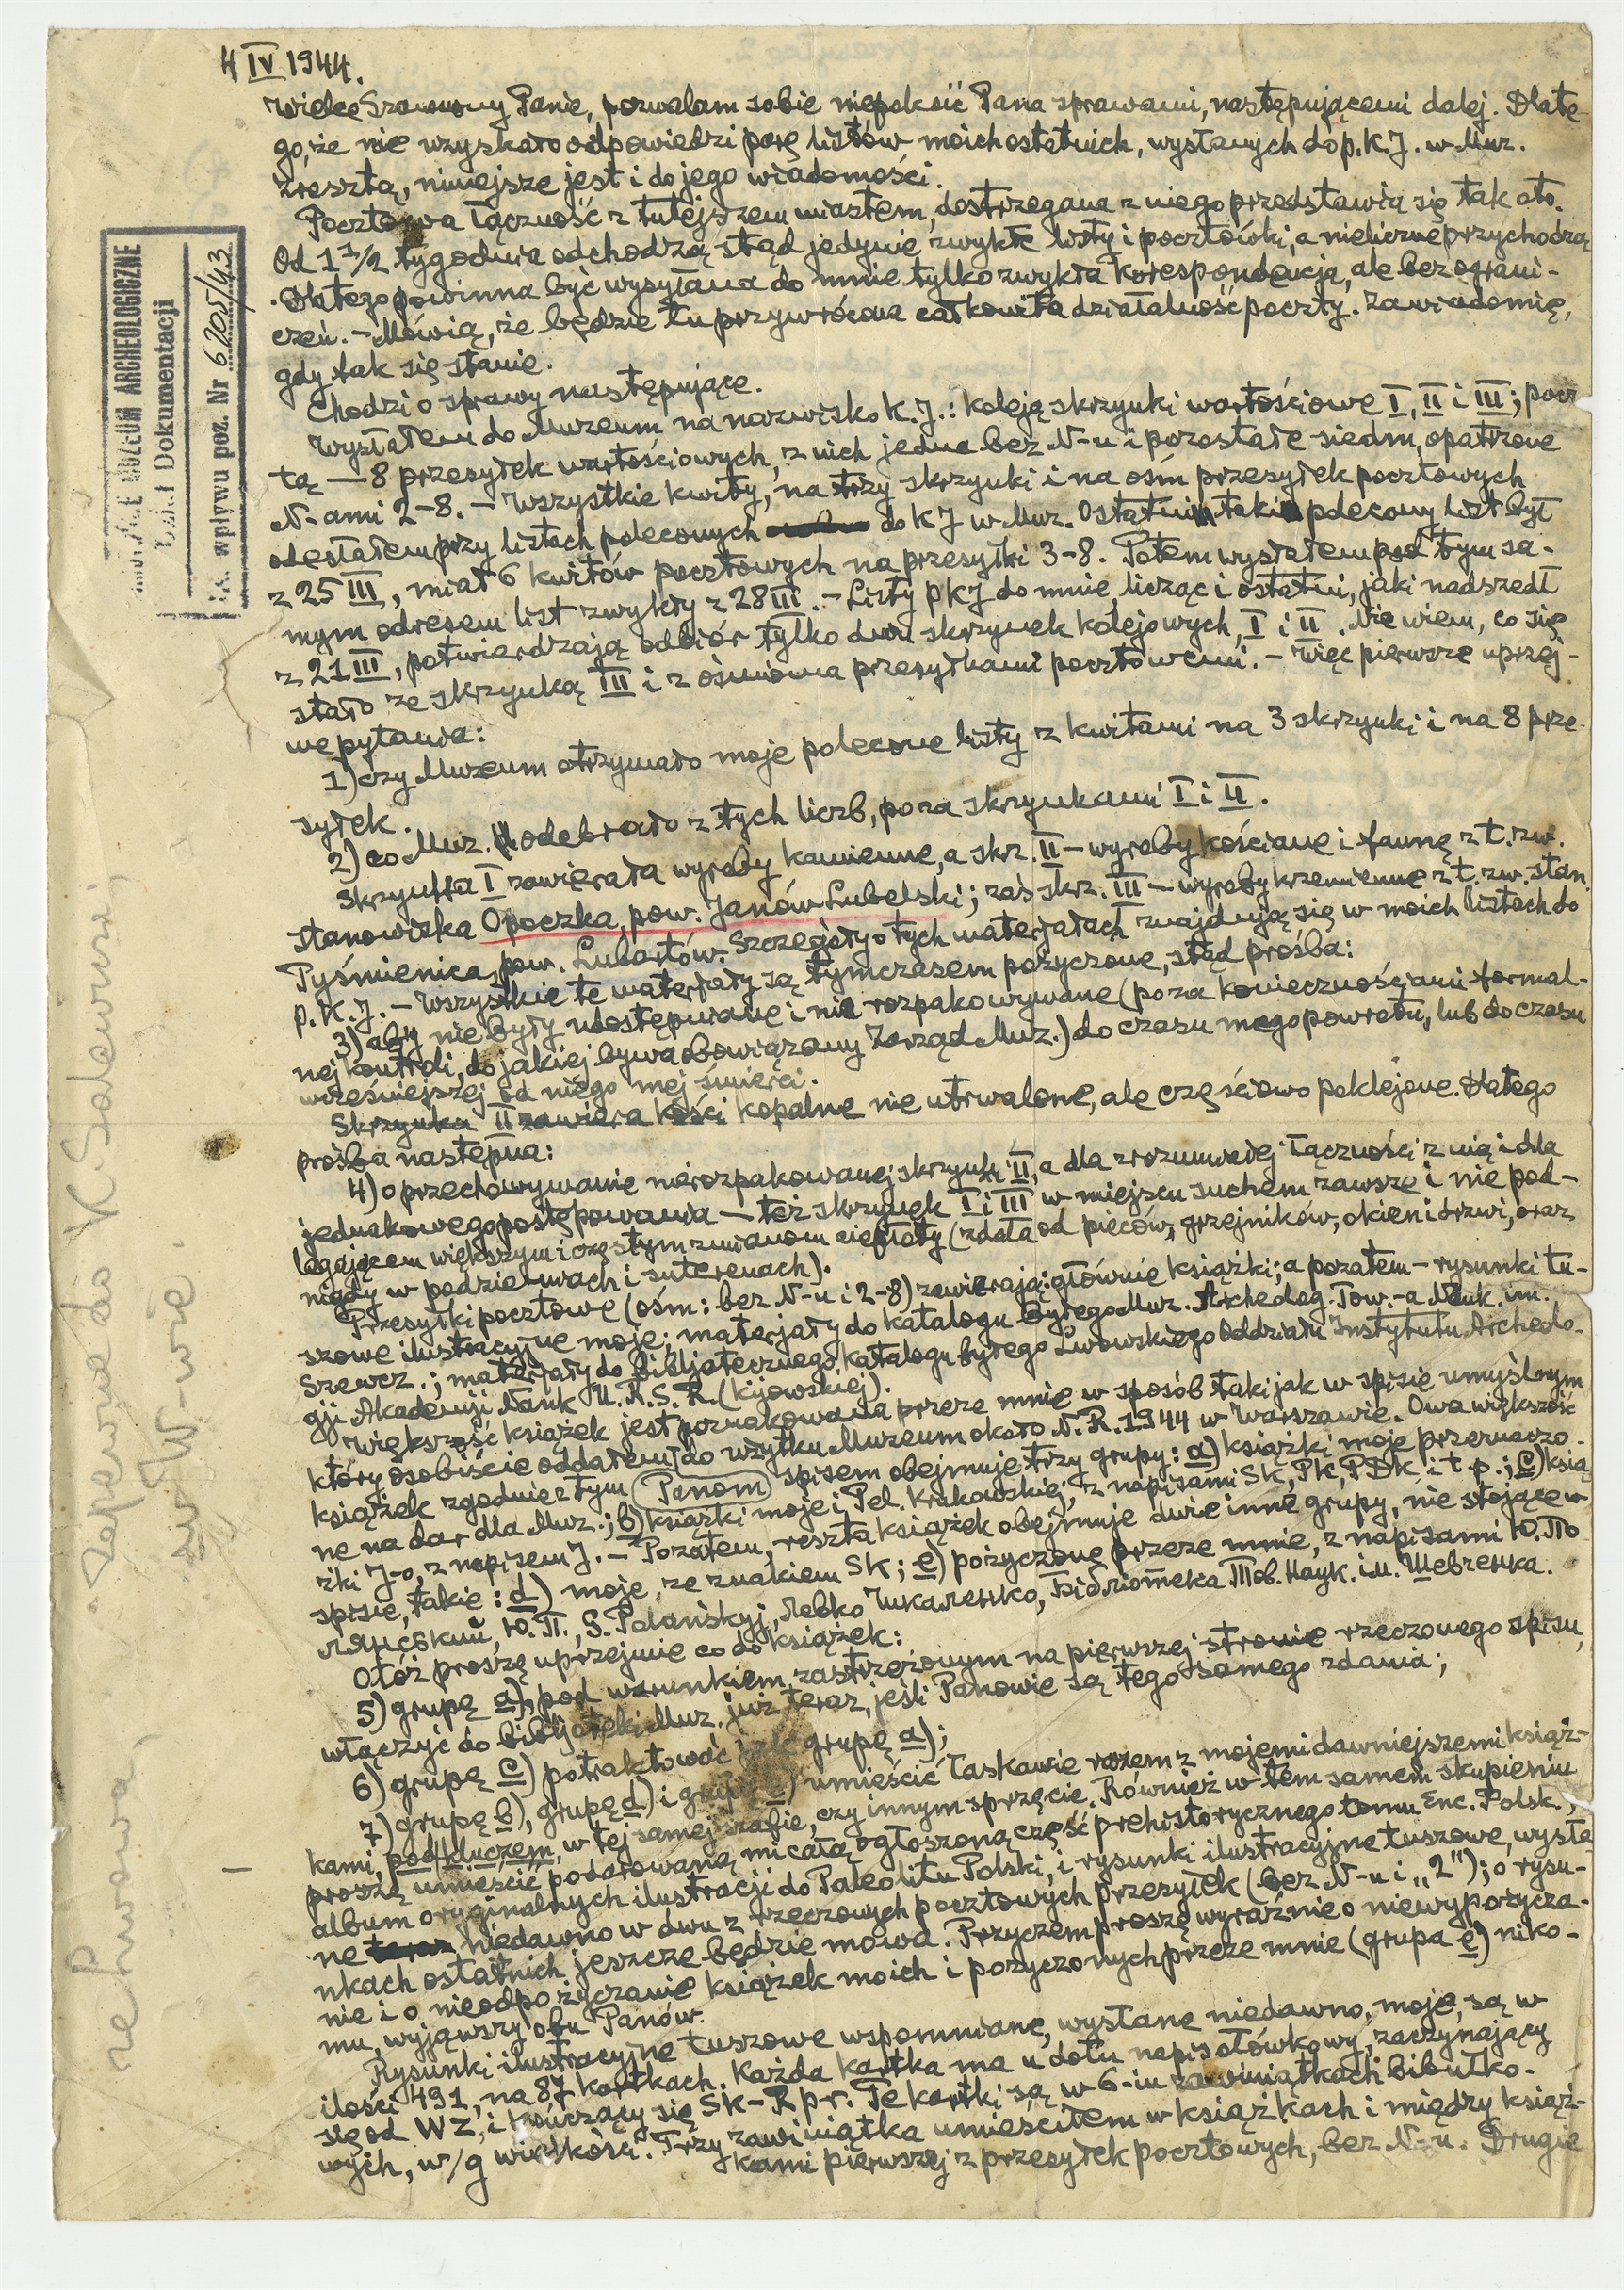 4 IV 1944.
Wielce Szanowny Panie, pozwalam sobie niepokoić Pana sprawami, następującemi dalej. Dlate-
go, że nie uzyskało odpowiedzi parę listów moich ostatnich, wysłanych do p. K. J. w Muz.
Zresztą, niniejsze jest i do jego wiadomości.
Pocztowa łączność z tutejszem miastem, dostrzegana z niego przedstawia się tak oto.
Od 1 1/2 tygodnia odchodzą stąd jedynie zwykłe listy i pocztówki, a nieliczne przychodzą
. Dlatego powinna być wysyłana do mnie tylko zwykła korespondencja, ale bez ograni-
czeń. – Mówią, że będzie tu przywrócona całkowita działalność poczty. Zawiadomię,
gdy tak się stanie.
Chodzi o sprawy następujące.
Wysłałem do Muzeum na nazwisko K. J.: koleją skrzynki wartościowe I, II i III; pocz
tą — 8 przesyłek wartościowych, z nich jedna bez N-u i pozostałe siedm, opatrzone
N-ami 2-8. – Wszystkie kwity, na trzy skrzynki i na ośm przesyłek pocztowych
odesłałem przy listach poleconych do K J w Muz. Ostatni taki polecony list był
z 25 III, miał 6 kwitów pocztowych na przesyłki 3-8. Potem wysłałem pod tym sa-
mym adresem list zwykły z 28 III. – Listy p K J do mnie, licząc i ostatni, jaki nadszedł
z 21 III, potwierdzają odbiór tylko dwu skrzynek kolejowych, I i II. Nie wiem, co się
stało ze skrzynką III i z ośmioma przesyłkami pocztowemi. – Więc pierwsze uprzej-
me pytania:
1) czy Muzeum otrzymało moje polecone listy z kwitami na 3 skrzynki i na 8 prze-
syłek.
2) co Muz. odebrało z tych liczb, poza skrzynkami I i II.
Skrzynka I zawierała wyroby kamienne, a skr. II – wyroby kościane i faunę z t. zw.
stanowiska Opoczka, pow. Janów Lubelski; zaś skr. III – wyroby krzemienne z t. zw. stan.
Pyśmienica, pow. Lubartów. Szczegóły o tych materjałach znajdują się w moich listach do
p. K. J. – Wszystkie te materjały są tymczasem pożyczone, stąd prośba:
3) aby nie były udostępniane i nie rozpakowywane (poza koniecznościami formal-
nej kontroli, do jakiej bywa obowiązany Zarząd Muz.) do czasu mego powrotu, lub do czasu
wcześniejszej od niego mej śmierci.
Skrzynka II zawiera kości kopalne nie utrwalone, ale częściowo poklejone. Dlatego
prośba następna:
4) o przechowywanie nierozpakowanej skrzynki II, a dla zrozumiałej łączności z nią i dla
jednakowego postępowania – też skrzynek I i III w miejscu suchem zawsze i nie pod-
legającem większym i częstym zmianom ciepłoty (zdala od pieców, grzejników, okien i drzwi, oraz
nigdy w podziemiach i suterenach).
Przesyłki pocztowe (ośm: bez N-u i 2-8) zawierają: głównie książki; a pozatem – rysunki tu-
szowe ilustracyjne moje; materjały do katalogu byłego Muz. Archeolog. Tow.-a Nauk. im.
Szewcz.; materjały do bibljotecznego katalogu byłego Lwowskiego Oddziału Instytutu Archeolo-
gji Akademji Nauk U. R. S. R. (kijowskiej).
Większość książek jest poznakowana przeze mnie w sposób taki jak w spisie umyślnym
który osobiście oddałem do użytku Muzeum około N. R. 1944 w Warszawie. Owa większość
książek zgodnie z tym Panom spisem obejmuje trzy grupy: a) książki moje przeznaczo-
ne na dar dla Muz.; b) książki moje i Pel. Krakowskiej, z napisami SK, PK, PDK i t. p.; c) ksią
żki J-o, z napisem J. – Pozatem, reszta książek obejmuje dwie inne grupy, nie stojące w
spisie, takie: d) moje, ze znakiem SK; e) pożyczone przeze mnie, z napisami Ю. По
лянський, Ю. П., S. Polańskyj, Левко Чикаленко, Бібліотека Тов. Наук. ім. Шевченка.
Otóż proszę uprzejmie co do książek:
5) grupę a), pod warunkiem, zastrzeżonym na pierwszej stronie rzeczonego spisu,
włączyć do bibljoteki Muz. już teraz, jeśli Panowie są tego samego zdania;
6) grupę c) potraktować grupę a);
7) grupę b), grupę d) i grupę umieścić łaskawie razem z mojemi dawniejszemi książ-
kami, pod kluczem, w tej samej szafie, czy innym sprzęcie. Również w tem samem skupieniu
proszę umieścić podarowaną mi całą ogłoszoną część prehistorycznego tomu Enc. Polsk.,
album oryginalnych ilustracji do Paleolitu Polski, i rysunki ilustracyjne tuszowe, wysła-
ne niedawno w dwu z rzeczowych pocztowych przesyłek (bez N-u i „2"); o rysu-
nkach ostatnich jeszcze będzie mowa. Przyczem proszę wyraźnie o niewypożycza-
nie i o nieodpożyczanie książek moich i pożyczonych przeze mnie (grupa e) niko-
mu, wyjąwszy obu Panów.
Rysunki ilustracyjne tuszowe wspomniane, wysłane niedawno, moje, są w
ilości 491, na 87 kartkach. Każda kartka ma u dołu napis ołówkowy, zaczynający
się od WZ, i kończący się SK–R p r. Te kartki są w 6-iu zawiniątkach bibułko-
wych, w/g wielkości. Trzy zawiniątka umieściłem w książkach i między książ-
kami pierwszej z przesyłek pocztowych, bez N-u. Drugie
MUZEUM ARCHEOLOGICZNE
Dział Dokumentacji
wpływu poz. Nr 6205/43
Zapewne do K. Salewicza,
w W-wie.
ze Lwowa,